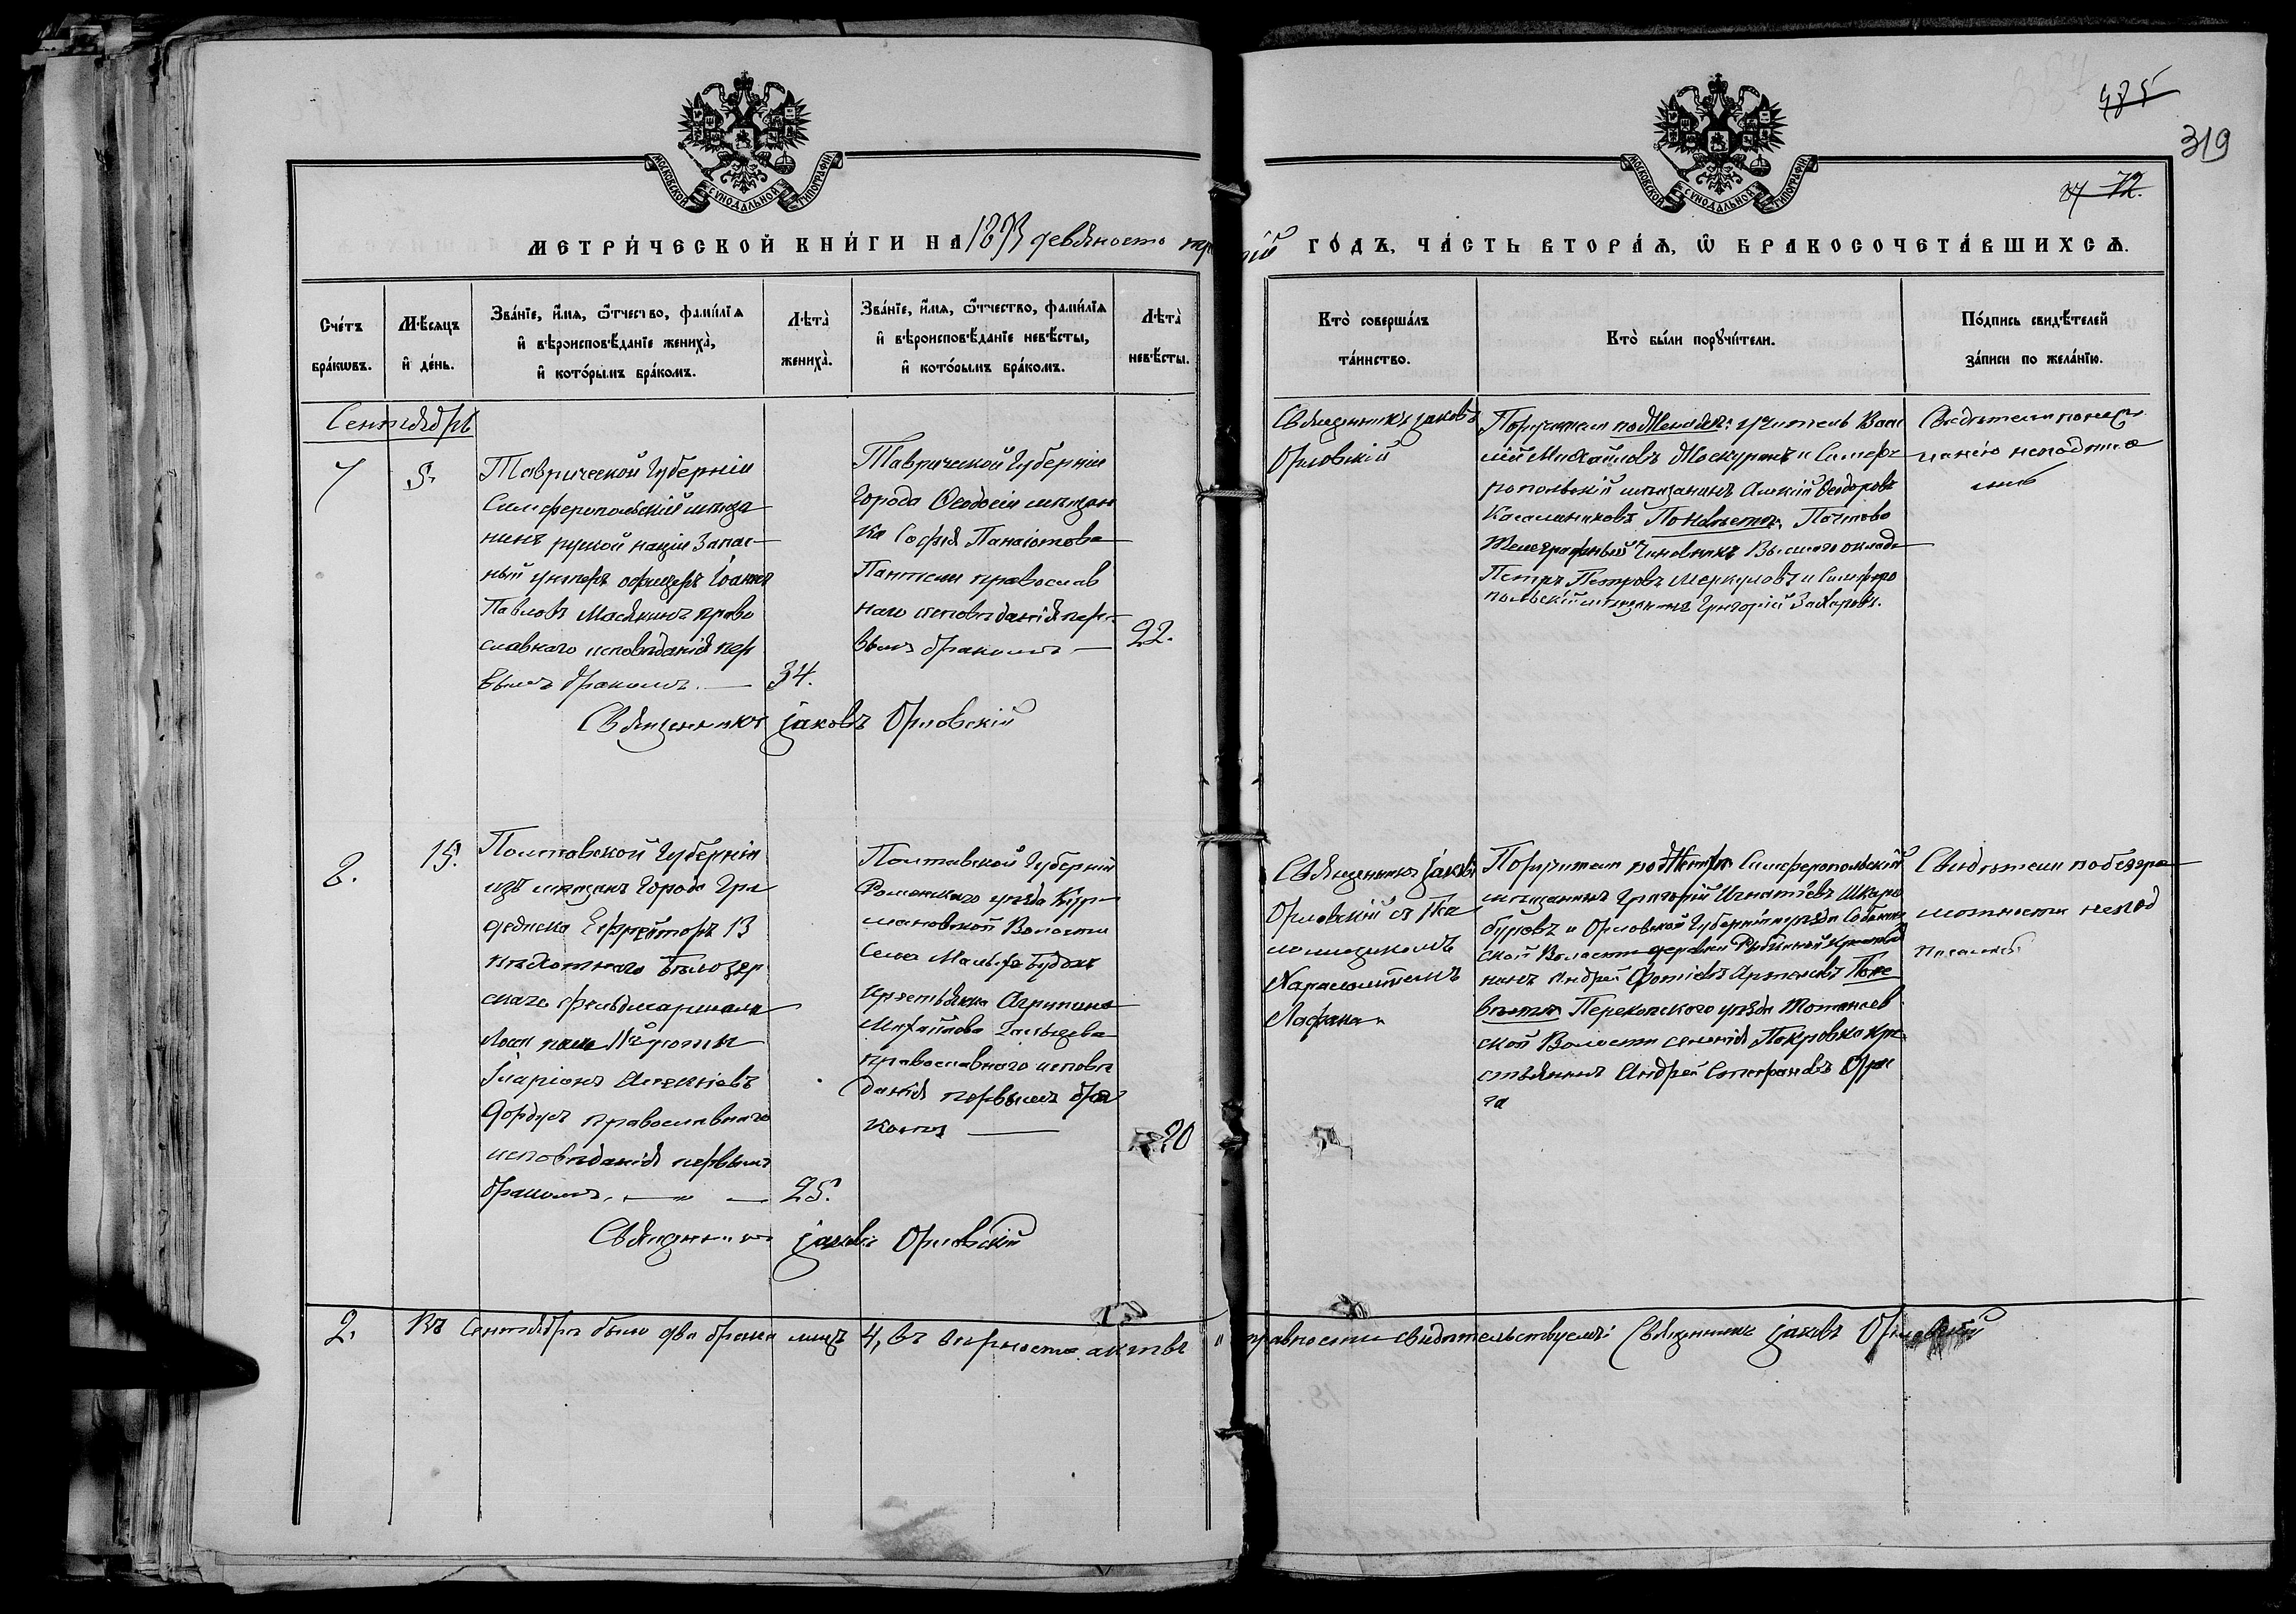 485
319
27 72.
МОСКОВСКОЙ СѴНОДАЛЬНОЙ ТИПОГРАФІИ
МОСКОВСКОЙ СѴНОДАЛЬНОЙ ТИПОГРАФІИ
МЕТРИ́ЧЕСКОЙ КНИ́ГИ НА 1893 девяносто третій ГО́ДЪ, ЧА́СТЬ ВТОРА́Ѧ, Ѽ БРАКОСОЧЕТА́ВШИХСѦ.
Сче́тъ бра́кѡвъ.
Мѣ́сѧцъ и҆ де́нь.
Зва́нїе, и҆́мѧ, ѻ҆́тчество, фами́лїѧ
и҆ вѣроисповѣ́данїе жениха̀,
и҆ кото́рымъ бра́комъ.
Лѣта̀ жениха̀.
Зва́нїе, и҆́мѧ, ѻ҆́тчество, фами́лїѧ
и҆ вѣроисповѣ́данїе невѣ́сты,
и҆ кото́рымъ бра́комъ.
Лѣта̀ невѣ́сты.
Кто̀ соверша́лъ
та́инство.
Кто̀ бы́ли порꙋчи́тели.
По́дпись свидѣ́телей
за́писи по жела́нїю.
Сентябрь
7
5.
Таврической Губерніи
Симферопольскій мѣща
нинъ руской націи Запас
ный унтеръ офицеръ Іоаннъ
Павловъ Масякинъ право
славнаго исповѣданія пер
вымъ бракомъ.
34.
Таврической Губерніи
Города Ѳеодосіи мѣщан
ка Софія Панаіотова
Пантели православ
наго исповѣданія пер
вымъ бракомъ
22.
Священникъ Іаковъ
Орловскій
Поручители по Женихѣ: учитель Васи
лій Михайловъ и Симфе
ропольскій мѣщанинъ Алексій Ѳеодоровъ
Касаминаковъ По Невѣстѣ. Почтово
Телеграфный Чиновникъ Высшаго оклада
Петръ Петровъ Меркуловъ и Симферо
польскій мѣщанинъ Григорій Захаровъ.
Свидѣтели по
неподписа
лись
Священникъ Іаковъ Орловскій
8.
15.
Полтавской Губерніи
изъ мѣщанъ Города Гра
дежска Ефрейторъ 13
пѣхотнаго Бѣлозер
скаго фельдмаршала
Ласси полка роты
Іларіонъ Алексіевъ
православнаго
исповѣданія первымъ
бракомъ.
25.
Полтавской Губерніи
Роменскаго уѣзда
Волости
Села Малыхъ Будокъ
крестьянка Агрипина
Михайлова
православнаго исповѣ
данія первымъ бра
комъ
20
Священникъ Іаковъ
Орловскій съ Пса
ломщикомъ
Харлампіемъ
Поручители по Женихѣ Симферопольскій
мѣщанинъ Григорій Игнатіевъ Шкаро
буровъ и Орловской Губерніи уѣзда
ской Волости деревни крестья
нинъ Андрей Фотіевъ Артемовъ По не
вѣстѣ. Перекопскаго уѣзда
ской Волости селенія Покровка кре
стьянинъ Андрей Стефановъ
Свидѣтели по безгра
мотности непод
писались
Священникъ Іаковъ Орловскій
2.
Въ Сентябрѣ было два брака лицъ 4, въ вѣрности актовъ и правности свидѣтельствуемъ: Священникъ Іаковъ Орловскій